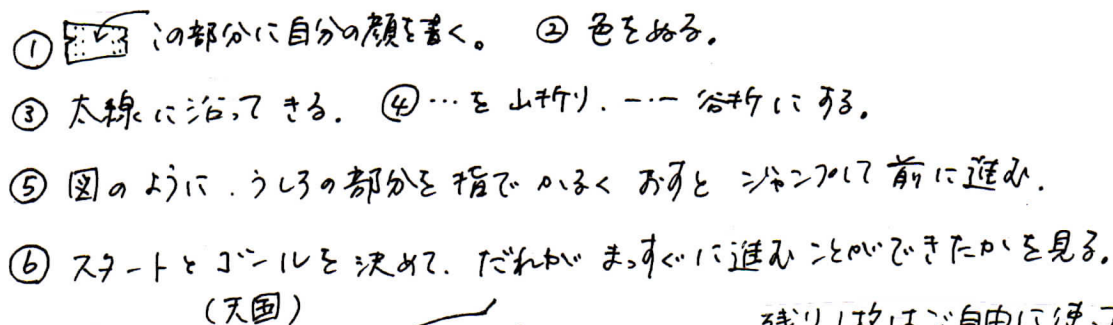 ① この部分に自分の顔を書く。 ② 色をぬる。
③ 太線に沿ってきる. ④ … を山折り. −・− 谷折りにする。
⑤ 図のように.うしろの部分を指でかるくおすとジャンプして前に進む.
⑥ スタートとゴールを決めて.だれがまっすぐに進むことができたかを見る。
(天国)
残り1枚はご自由に使